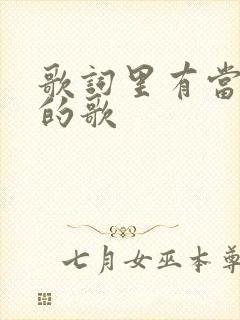 歌詞里有當
的歌
七月女巫本尊